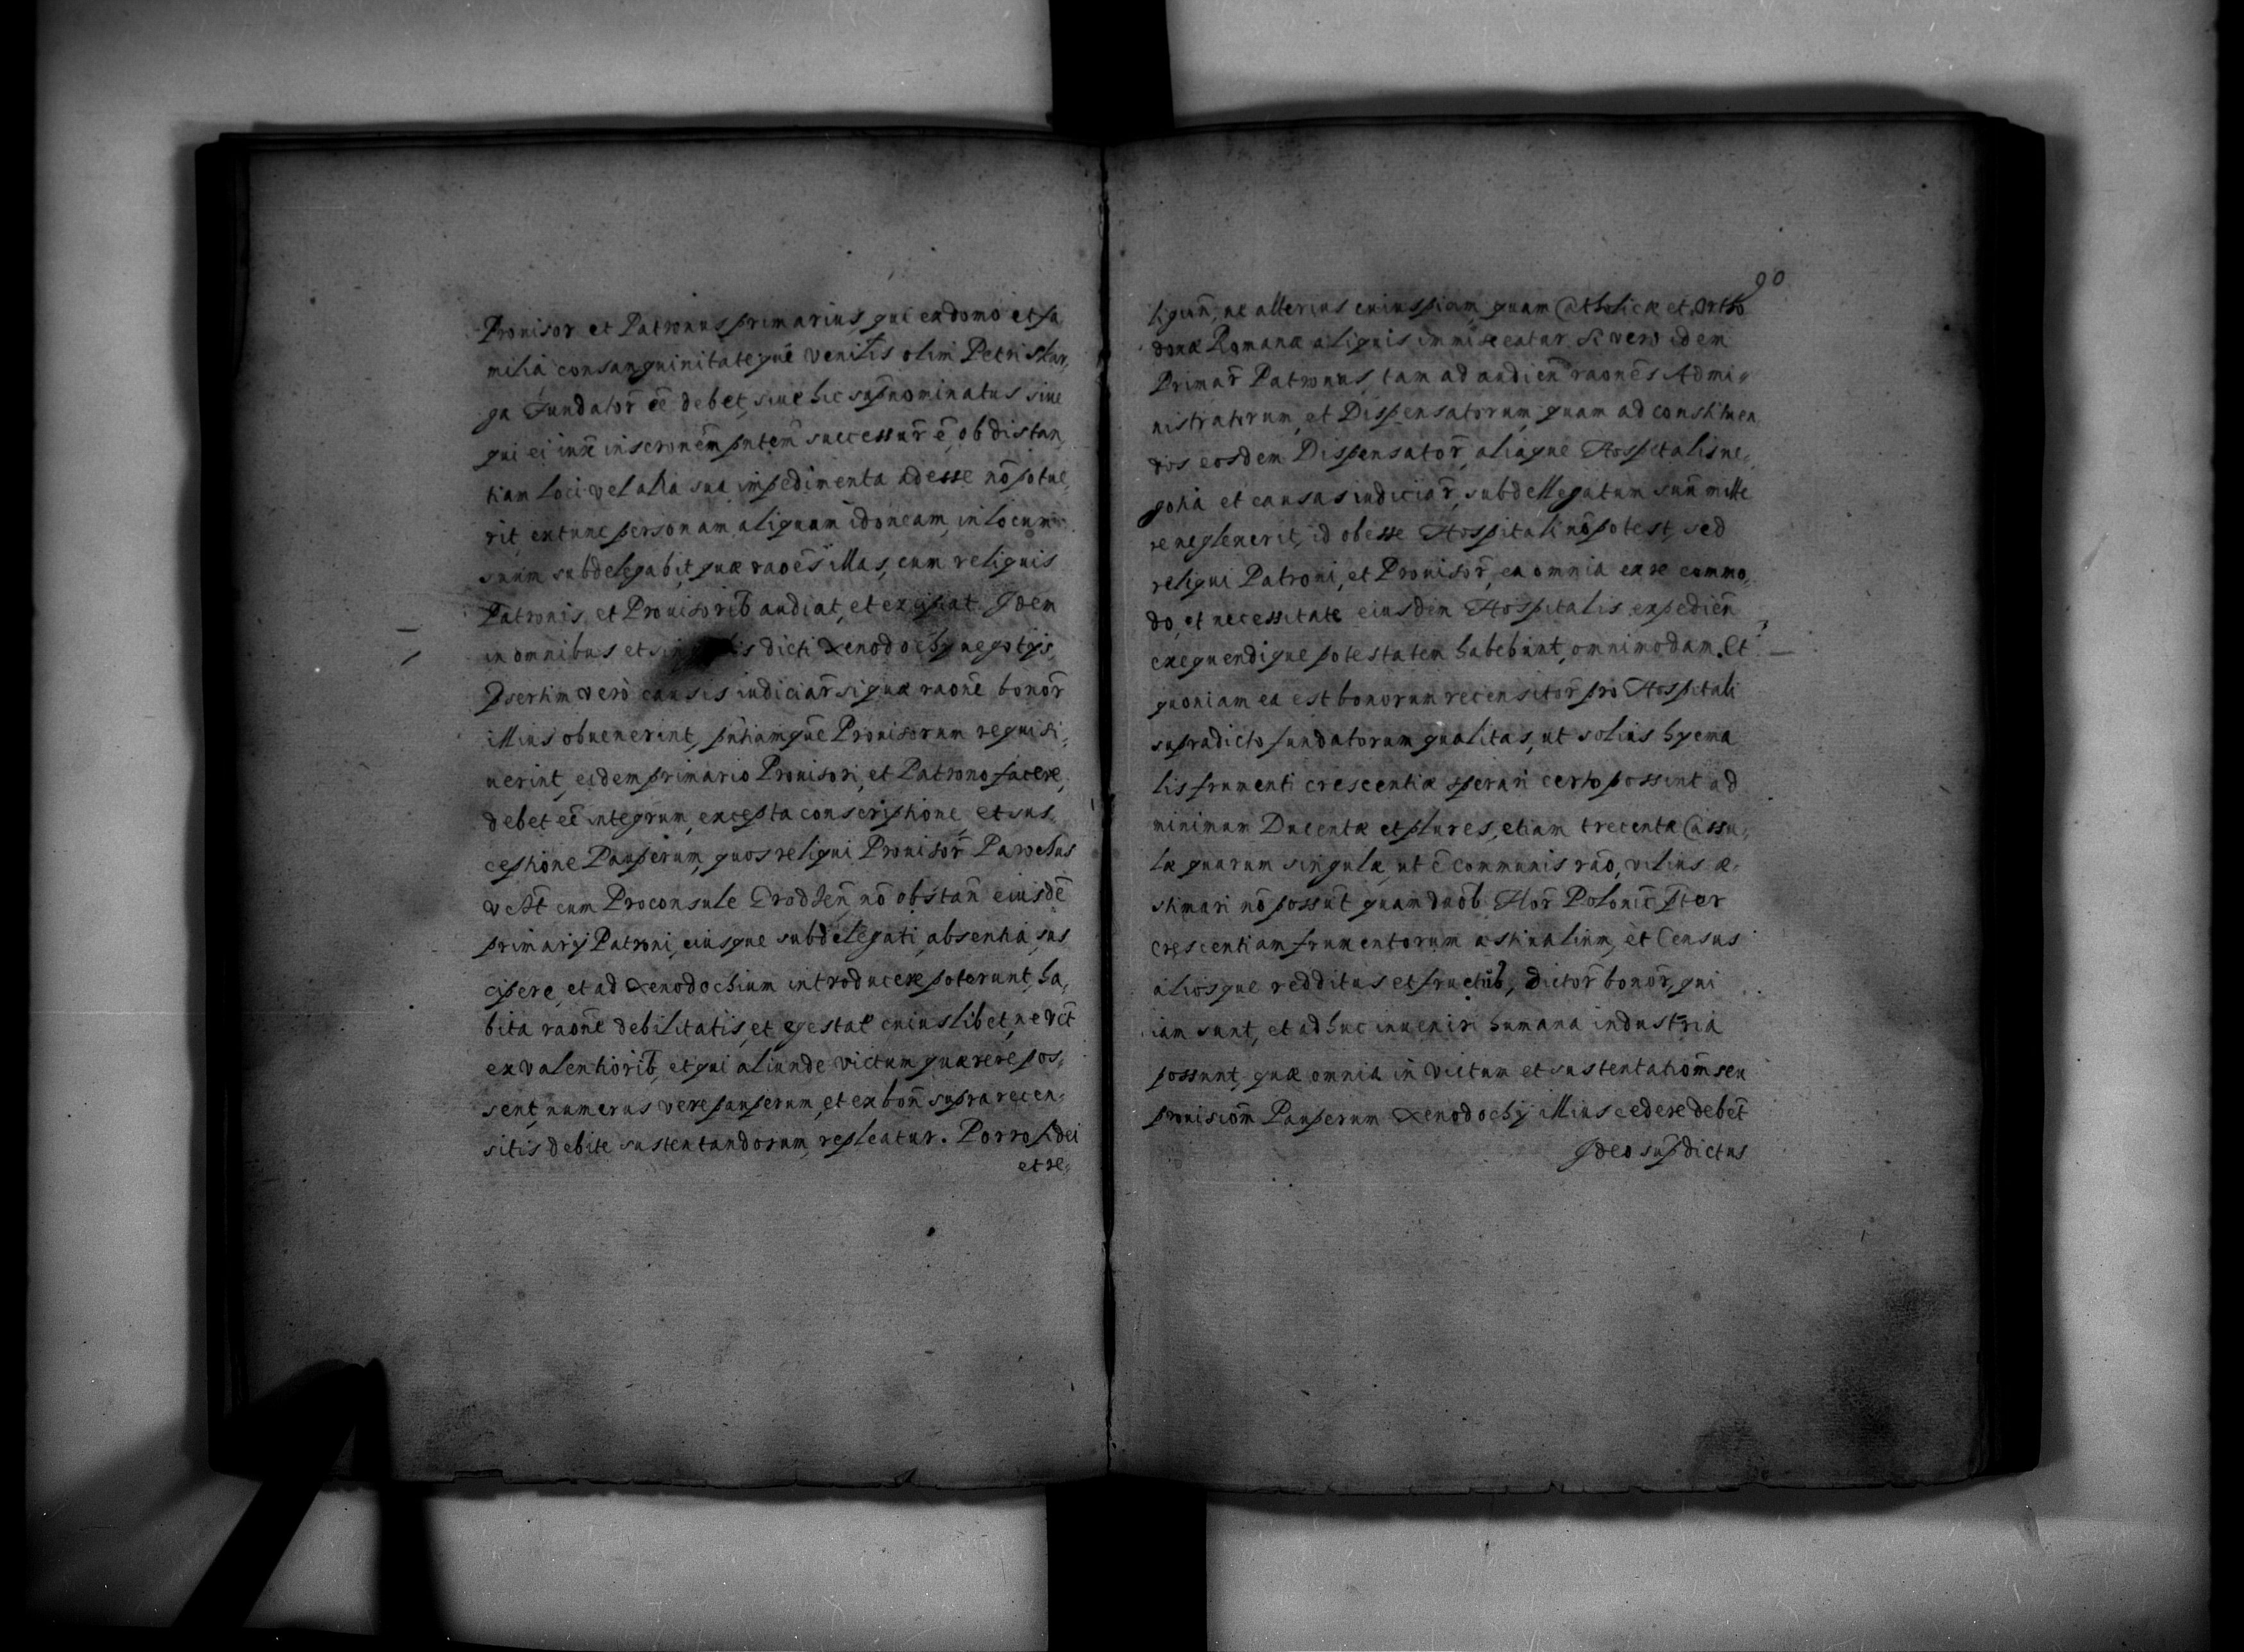 Prouisor et Patronus primarius, qui ex domo et fa
milia consanguinitateq̃ue Venĩlis olim Petri Skar,
ga Fundator̃ eẽ debet, siue hic sup̃nominatus siue
qui ei iux̃ inscronẽm pñtem successur̃ ẽ, ob distan,
tiam loci vel alia sua impedimenta adesse nõ potue,
rit, ex tunc personam aliquam idoneam, in locum
suum subdelegabit, quæ raoẽs illas, cum reliquis
Patronis, et Prouisorib̃ audiat, et excipiat. Idem
in omnibus et dicti Xenodochÿ negotijs,
Psertim verò causis iudiciar̃ si quæ raoñe bonor̃
illius obuenerint, pñtiamq̃ue Prouisorum requisi,
uerint, eidem primario Prouisori, et Patrono facere,
debet eẽ integrum, excepta conscriptione et sus,
ceptione Pauperum, quos reliqui Prouisor̃ Parochus
vct̃ cum Proconsule Grodzeñ, nõ obstañ eiusdẽ
primarÿ Patroni, eiusque subdelegati, absentia, sus
cipere, et ad Xenodochium introducere poterunt, ha,
bita raoñe debilitatis, et egestat̃ cuiuslibet, ne vct̃
ex Valentiorib̃, et qui aliunde victum quærere pos,
sent, numerus vere pauperum, et ex boñ supra recen,
sitis debite sustentandorum, repleatur. Porro fidei
et re,
90
ligioñ, ne alterius cuiuspiam, quam Catholicæ et Ortho
doxæ Romanæ aliquis immisceatur. Si vero idem
Primar̃ Patronus, tam ad audieñ raonẽs Admi,
nistratorum, et Dispensatorum, quam ad constituen,
dos eosdem Dispensator̃, aliaque Hospitalis ne,
gotia et causas iudiciar̃, subdellegatum suũ mitte
re neglexerit, id obesse Hospitali nõ potest, sed
reliqui Patroni, et Prouisor̃, ea omnia ex re commo,
do, et necessitate eiusdem Hospitalis expedieñ
exequendique potestatem habebunt, omnimodam. Et
quoniam ea est bonorum recensitor̃ pro Hospitali
supradicto fundatorum qualitas, ut solius hyema
lis frumenti crescentiæ sperari certo possint ad
minimum Ducentæ et plures, etiam trecentæ Cassu,
læ quarum singulæ, ut ẽ communis rao, vilius æ,
stimari nõ possũt quam duob̃ Flor̃ Poloniĉ p̃ter
crescentiam frumentorum æstiualium, et Census
aliosque redditus et fructib̃, dictor̃ bonor̃, qui
iam sunt, et adhuc inueniri humana industria
possunt, quæ omnia in Victum et sustentatioñm seu
prouisioñm Pauperum Xenodochÿ illius cedere debẽt
Ideo sup̃dictus